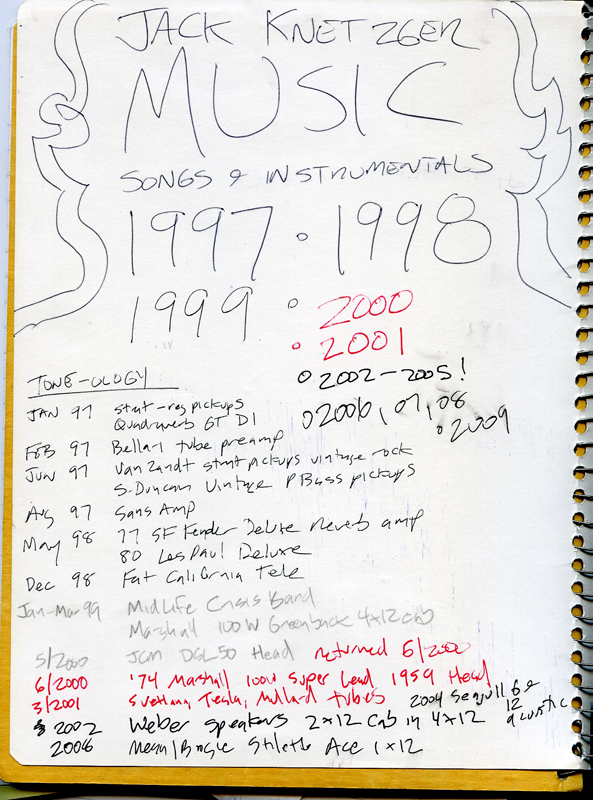 JACK KNETZGER
MUSIC
SONGS & INSTRUMENTALS
1997 • 1998
1999 • 2000
• 2001
TONE-OLOGY • 2002-2005!
• 2006, 07, 08
• 2009
JAN 97 strat-res pickups
Quadraverb GT DI
FEB 97 Bellari tube preamp
Jun 97 Van Zandt strat pickups vintage rock
S. Duncan Vintage P Bass pickups
Aug 97 Sans Amp
May 98 77 SF Fender Deluxe Reverb amp
80 Les Paul Deluxe
Dec 98 Fat California Tele
Jan-Mar 99 MidLife Crisis Band
Marshall 100W Greenback 4x12 cab
5/2000 JCM DSL50 Head returned 6/2000
6/2000 '74 Marshall 100W Super Lead 1959 Head
3/2001 Svetlana, Tesla, Mullard tubes
2004 Seagull 6 & 12 acoustic
2002 Weber speakers 2x12 Cab in 4x12
2006 Mesa/Boogie Stiletto Ace 1x12